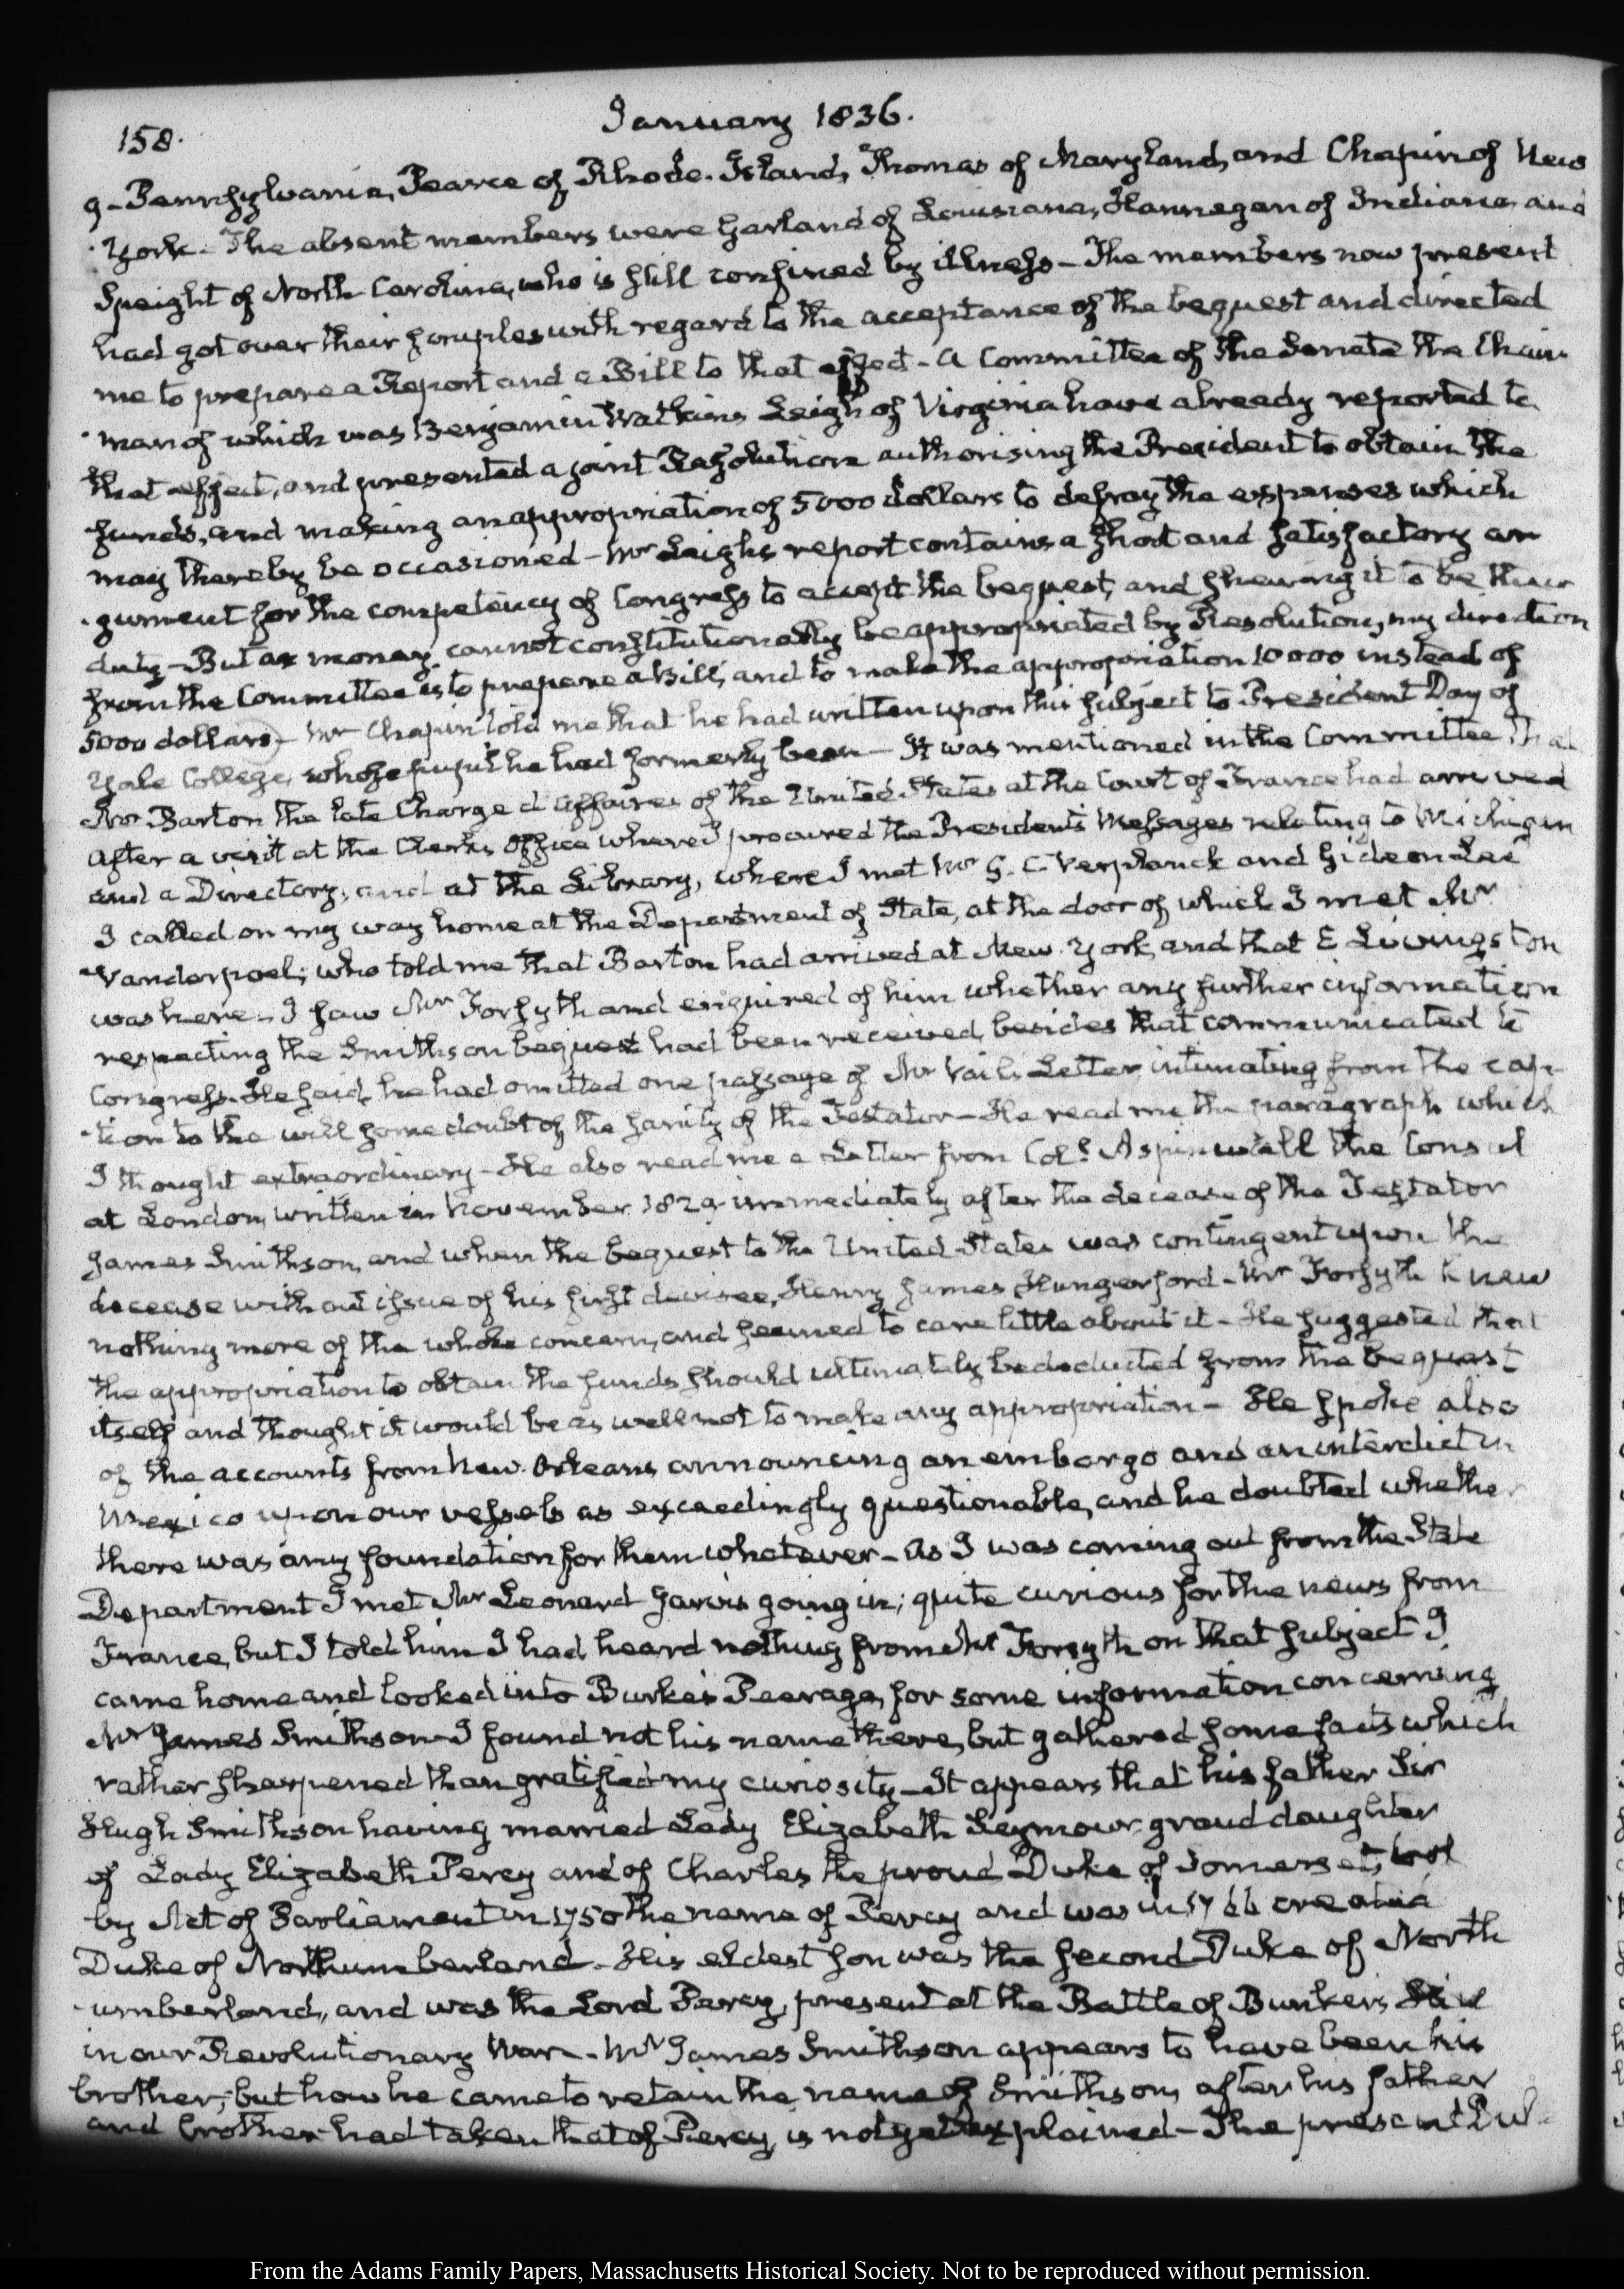 158.
January 1836.
9 - Pennsylvania, Pearce of Rhode-Island, Thomas of Maryland, and Chapin of New
-York - The absent members were Garland of Louisiana, Hannegan of Indiana and
Speight of North Carolina, who is still confined by illness - The members now present
had got over their scruples with regard to the acceptance of the bequest and directed
me to prepare a Report and a Bill to that effect - A Committee of the Senate the Chair
-man of which was Benjamin Watkins Leigh of Virginia have already reported to
that effect, and presented a joint Resolution authorising the President to obtain the
funds, and making an appropriation of 5000 dollars to defray the expenses which
may thereby be occasioned - Mr Leigh's report contains a short and satisfactory ar
-gument for the competency of Congress to accept the bequest, and shewing it to be their
duty - But as money cannot constitutionally be appropriated by Resolution, my direction
from the Committee is to prepare a Bill, and to make the appropriation 10000 instead of
5000 dollars - Mr Chapin told me that he had written upon this subject to President Day of
Yale College, whose pupil he had formerly been - It was mentioned in the Committee that
Mr Barton the late Charge d'Affaires of the United States at the Court of France had arrived
After a visit at the Clerk's Office where I procured the President's Messages relating to Michigan
and a Directory; and at the Library, where I met Mr G. C. Verplanck and Gideon Lee
I called on my way home at the Department of State, at the door of which I met Mr
Vanderpoel; who told me that Barton had arrived at New-York, and that E Livingston
was here - I saw Mr Forsyth and enquired of him whether any further information
respecting the Smithson bequest had been received, besides that communicated to
Congress. He said he had omitted one passage of Mr Vail's Letter intimating from the cap
-tion to the will some doubt of the sanity of the Testator - He read me the paragraph which
I thought extraordinary - He also read me a Letter from Col. Aspinwall the Consul
at London, written in November 1829 immediately after the decease of the Testator
James Smithson, and when the bequest to the United States was contingent upon the
decease without issue of his first devisee, Henry James Hungerford - Mr Forsyth knew
nothing more of the whole concern, and seemed to care little about it - He suggested that
the appropriation to obtain the funds should ultimately be deducted from the bequest
itself and thought it would be as well not to make any appropriation - He spoke also
of the accounts from New-Orleans announcing an embargo and an interdict in
Mexico upon our vessels as exceedingly questionable, and he doubted whether
there was any foundation for them whatever - As I was coming out from the State
Department I met Mr Leonard Jarvis going in; quite curious for the news from
France, but I told him I had heard nothing from Mr Forsyth on that subject I
came home and looked into Burke's Peerage, for some information concerning
Mr James Smithson - I found not his name there, but gathered some facts which
rather sharpened than gratified my curiosity - It appears that his father Sir
Hugh Smithson having married Lady Elizabeth Seymour grand daughter
of Lady Elizabeth Percy and of Charles the proud Duke of Somerset, took
by Act of Parliament in 1750 the name of Percy and was in 1766 created
Duke of Northumberland - His eldest son was the second Duke of North
-umberland, and was the Lord Percy, present at the Battle of Bunker's Hill
in our Revolutionary War - Mr James Smithson appears to have been his
brother; but how he came to retain the name of Smithson, after his father
and brother had taken that of Percy, is not yet explained - The present Du
From the Adams Family Papers, Massachusetts Historical Society. Not to be reproduced without permission.